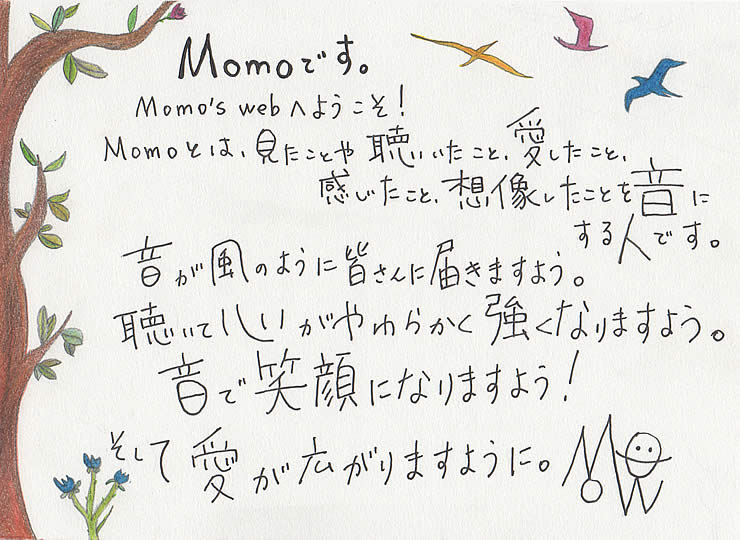 Momoです。
Momo's webへようこそ!
Momoとは、見たことや聴いたこと、愛したこと、
感じたこと、想像したことを音に
する人です。
音が風のように皆さんに届きますよう。
聴いて心がやわらかく強くなりますよう。
音で笑顔になりますよう!
そして愛が広がりますように。